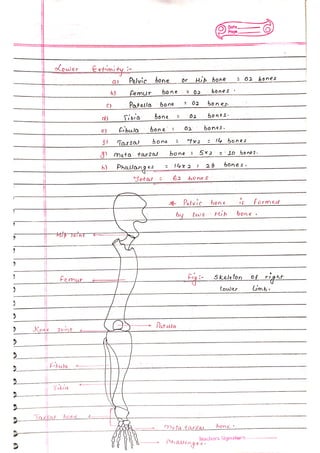 Date
Page
Lower Extimity :-
a) Pelvic bone or Hip bone = 02 bones
b) Femur bone = 02 bones.
c) Patella bone = 02 bones
d) Tibia bone = 02 bones.
e) Fibula bone = 02 bones.
f) Tarsal bone = 7x2 = 14 bones
g) Meta tarsal bone = 5x2 = 10 bones.
h) Phallanges = 14x2 = 28 bones.
Total = 62 bones
* Pelvic bone is formed
by two Hip bone.
Hip joint
Femur
Fig:- Skeleton of right
lower limb.
Knee joint
Patella
Fibula
Tibia
Tarsal bone
Meta tarsal bone.
Phallanges.
Teacher's Signature